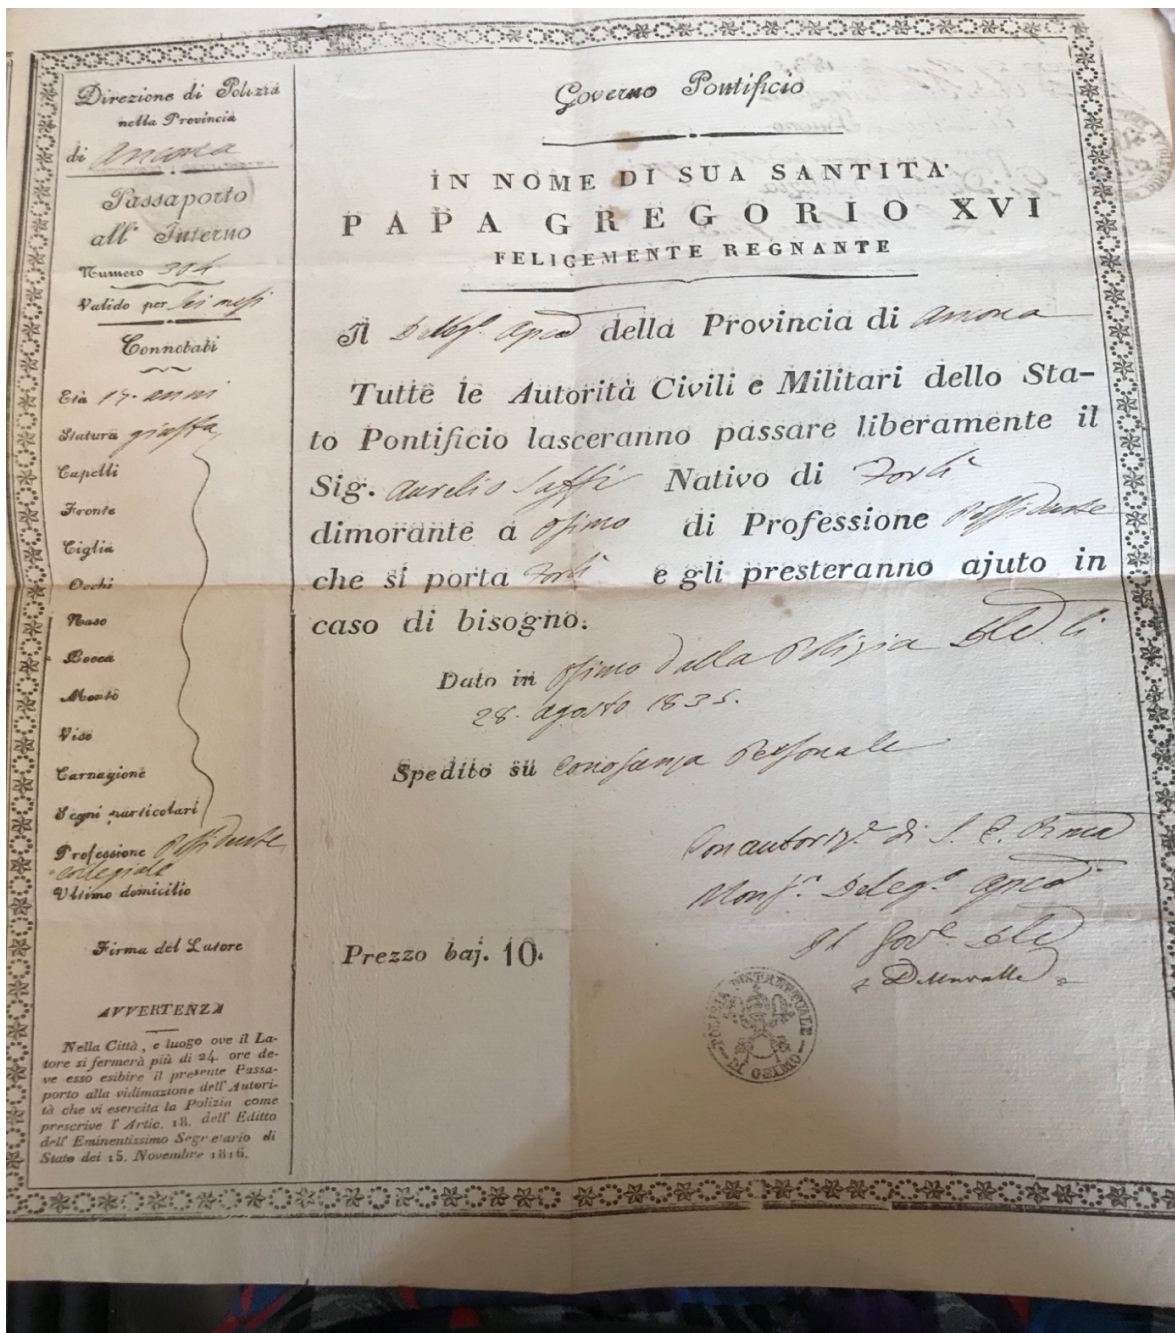 Direzione di Polizia
nella Provincia
di Ancona
Passaporto
all' Interno
Numero 304
Valido per Sei mesi
Connotati
Età 17. anni
Statura giusta
Capelli
Fronte
Ciglia
Occhi
Naso
Bocca
Mento
Viso
Carnagione
Segni particolari
Professione Possidente
collegiale
Ultimo domicilio
Firma del Latore
AVVERTENZA
Nella Città, e luogo ove il La-
tore si fermerà più di 24. ore de-
ve esso esibire il presente Passa-
porto alla vidimazione dell' Autori-
tà che vi esercita la Polizia come
prescrive l' Artic. 18. dell' Editto
dell' Eminentissimo Segretario di
Stato dei 15. Novembre 1816.
Governo Pontificio
IN NOME DI SUA SANTITA'
PAPA GREGORIO XVI
FELICEMENTE REGNANTE
Il Deleg.º Apco della Provincia di Ancona
Tutte le Autorità Civili e Militari dello Sta-
to Pontificio lasceranno passare liberamente il
Sig. Aurelio Saffi Nativo di Forlì
dimorante a Osimo di Professione Possidente
che si porta Forlì e gli presteranno ajuto in
caso di bisogno.
Dato in Osimo dalla Polizia li
28. agosto 1835.
Spedito su Conoscenza Personale
Con autoriz.e di S. E. Rma
Monsr. Deleg.º Apco
Il Gov.e
Prezzo baj. 10.
POLIZIA DISTRETTUALE DI OSIMO